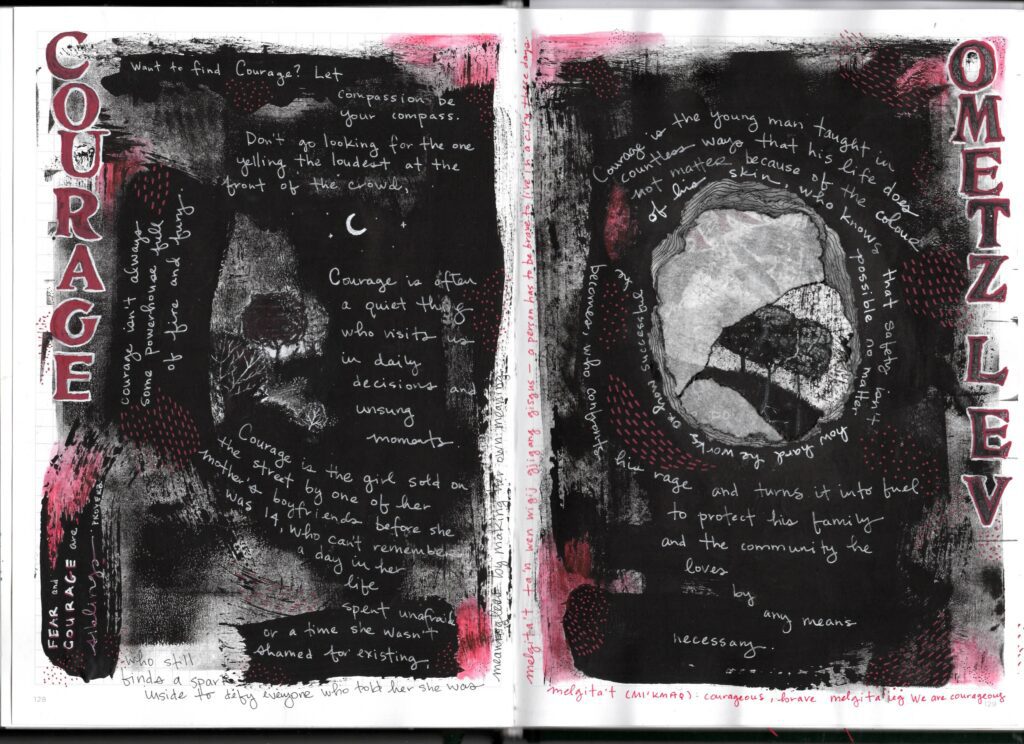 COURAGE
want to find Courage? Let
compassion be
your compass.
Don't go looking for the one
yelling the loudest at the
front of the crowd;
courage isn't always
some powerhouse full
of fire and fury
Courage is often
a quiet thing
who visits us
in daily
decisions and
unsung
moments
Courage is the girl sold on
the street by one of her
mother's boyfriends before she
was 14, who can't remember
a day in her
life
spent unafraid
or a time she wasn't
shamed for existing,
who still
finds a spark
inside to defy everyone who told her she was
meaningless by making her own meaning.
FEAR and
COURAGE are
siblings
PROVERB
128
melgita't ta'n wen wigij gjigang gisgus — a person has to be brave to live in a city these days
OMETZ LEV
Courage is the young man taught in
countless ways that his life does
not matter because of the colour
of his skin, who knows
that safety isn't
possible no matter
how hard he works
or how successful he
becomes who converts
his rage and turns it into fuel
to protect his family
and the community he
loves
by
any means
necessary.
melgita't (MI'KMAQ): courageous, brave melgita'ieg We are courageous
129